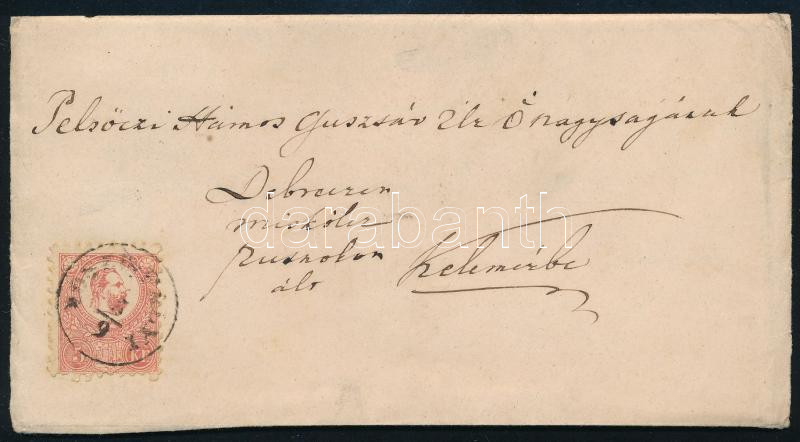 Pelsőczi Hámos Gusztáv Úr Ő nagyságának
Debreczen
miskólcz
putnokon
ált
Kelemérbe
darabanth
5 KR